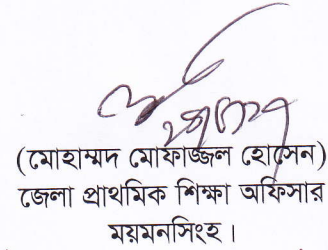 (মোহাম্মদ মোফাজ্জল হোসেন)
জেলা প্রাথমিক শিক্ষা অফিসার
ময়মনসিংহ।